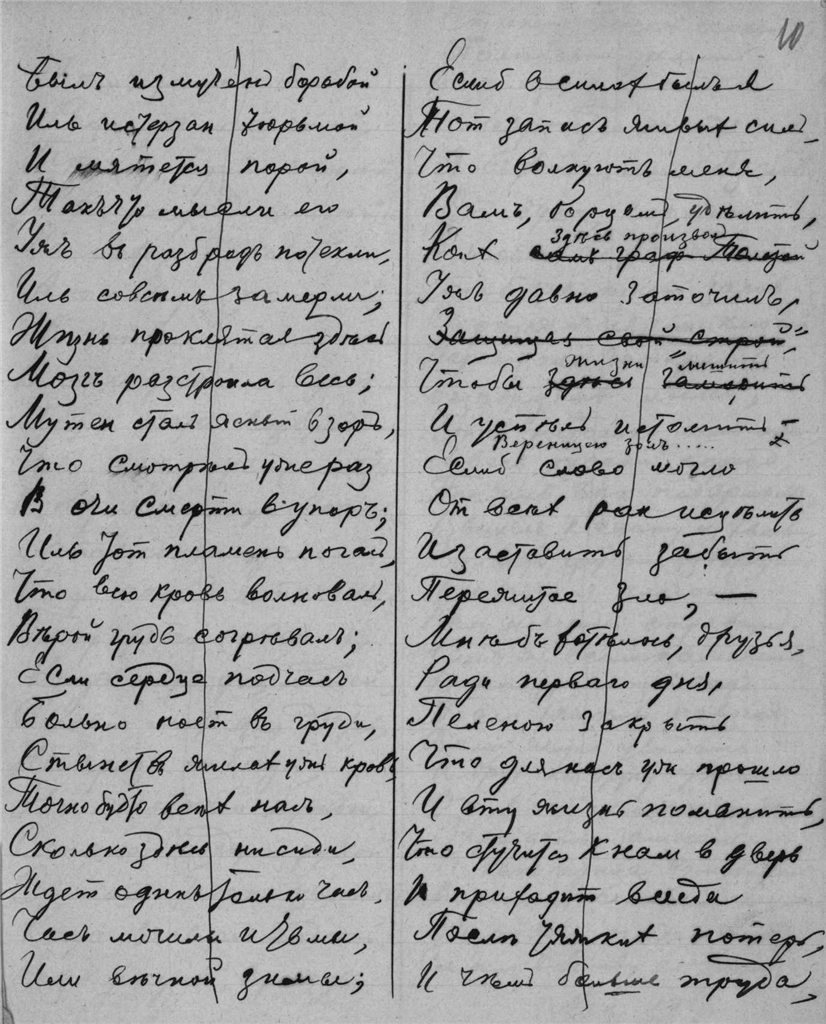 10
Былъ измучен борьбой
Иль истерзан тюрьмой
И мятется порой,
Такъ что мысли его
Уж въ разбродъ потекли,
Иль совсѣмъ замерли;
Жизнь проклятая здѣсь
Мозгъ разстроила весь;
Мутен сталъ ясный взоръ,
Что смотрѣлъ уже раз
В очи смерти в упоръ;
Иль тот пламень погасъ,
Что всю кровь волновалъ,
Вѣрой грудь согрѣвалъ;
Если сердце подчасъ
Больно ноет въ груди,
Стынетъ в жилах уже кровь,
Точно будто всѣх насъ,
Сколько здѣсь ни сиди,
Ждет одинъ только часъ,
Часъ могилы и тьмы,
Или вѣчной зимы;
Еслиб в силах былъ я
Тот запасъ живых силъ,
Что волнуютъ меня,
Вамъ, борцамъ, удѣлить,
Здѣсь произвол
Коих самъ граф Толстой
Ужъ давно заточилъ,
Защищая свой строй,
жизни лишить
Чтобы здѣсь заморить
И успѣлъ истомить
Вереницею золъ.....
Еслиб слово могло
От всѣх ран исцѣлить
И заставить забыть
Пережитое зло, —
Мнѣ бъ хотѣлось, друзья,
Ради перваго дня,
Пеленою закрыть
Что для насъ уж прошло
И эту жизнь помянить,
Что стучится к нам в дверь
И приходит всегда
Послѣ тяжких потерь,
И чѣмъ больше труда,